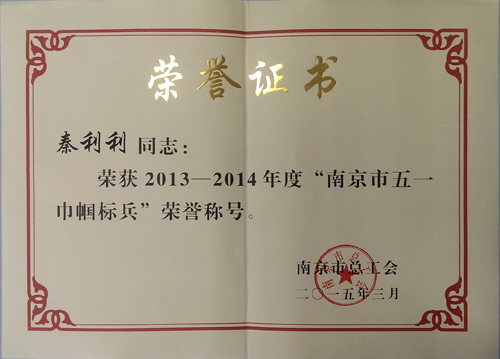 荣誉证书
秦利利 同志：
荣获2013—2014年度“南京市五一
巾帼标兵”荣誉称号。
南京市总工会
南京市总工会
二〇一五年三月